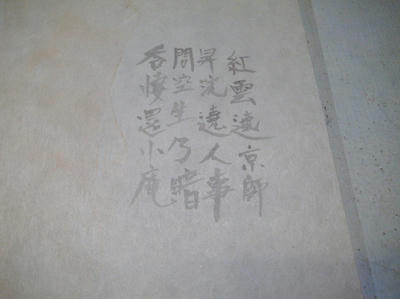 紅雲遠京師
昇沉遶人事
問空生乃暗
吞悽還小庵